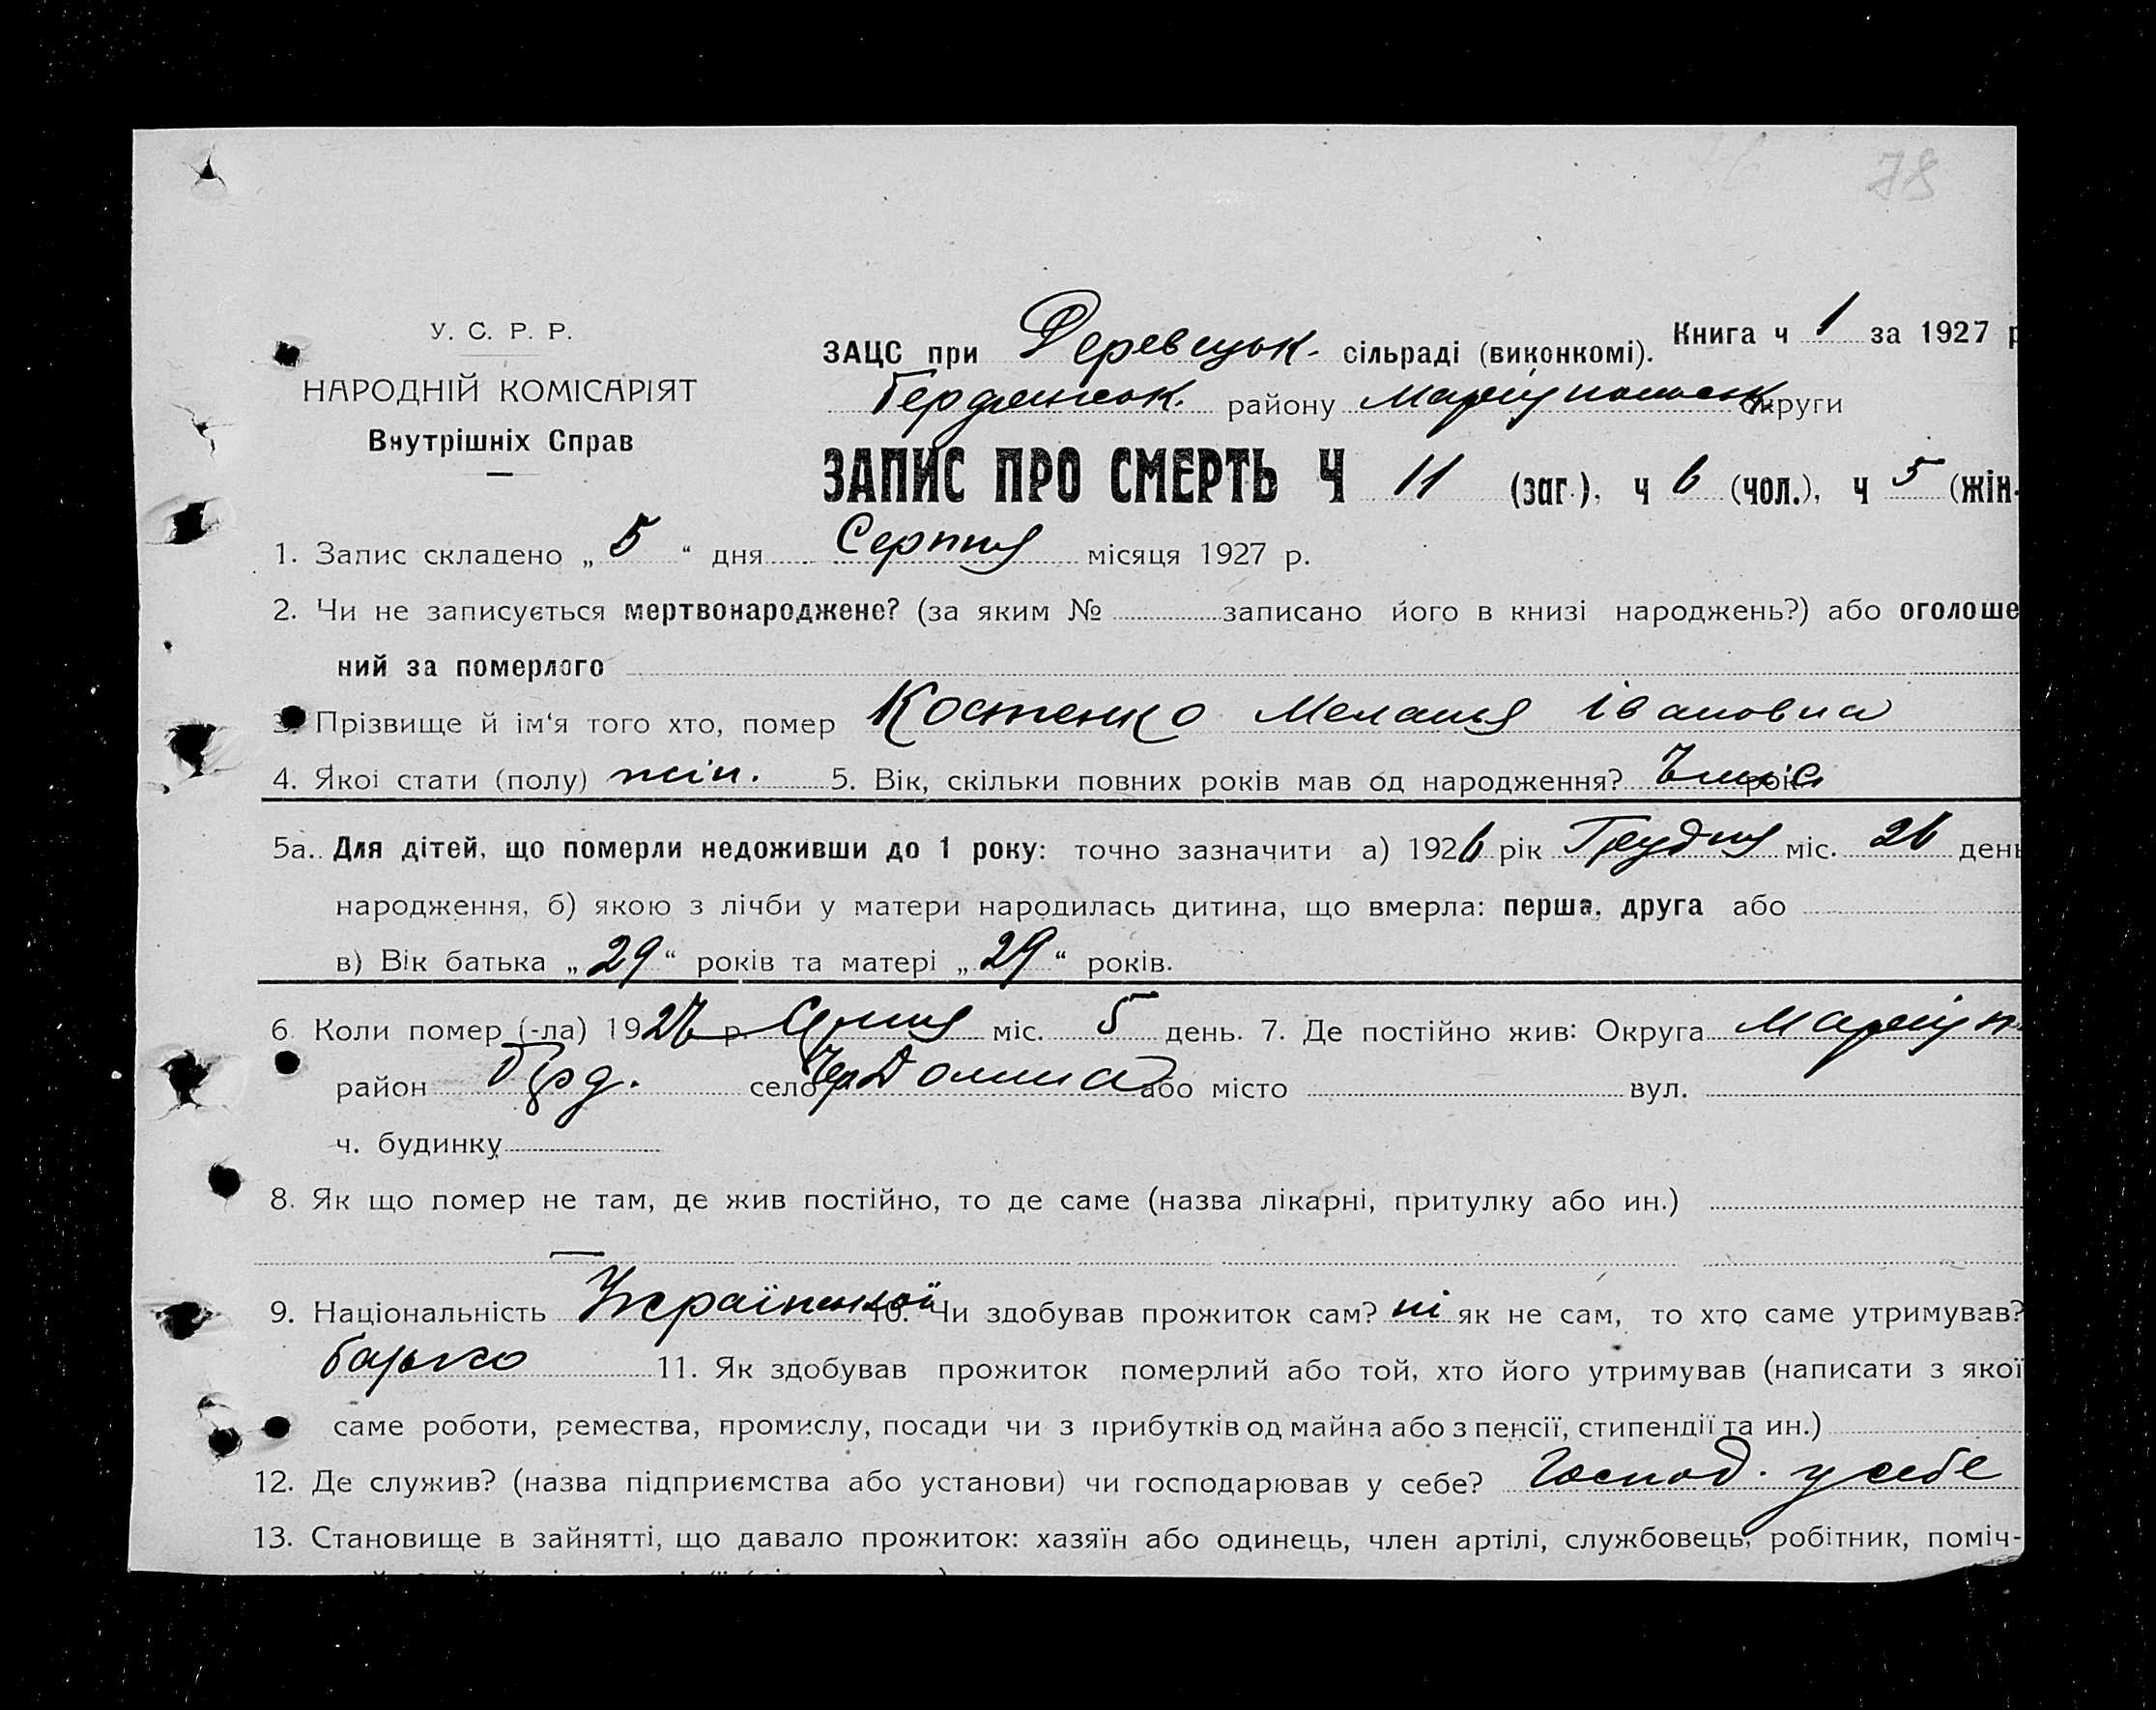 78
У. С. Р. Р.
НАРОДНІЙ КОМІСАРІЯТ
Внутрішніх Справ
Книга ч 1 за 1927 р
ЗАЦС при сільраді (виконкомі).
Бердянськ. району Маріупольськ. округи
ЗАПИС ПРО СМЕРТЬ Ч 11 (заг.), ч 6 (чол.), ч 5 (жін.
1. Запис складено „ 5 “ дня Серпня місяця 1927 р.
2. Чи не записується мертвонароджене? (за яким № записано його в книзі народжень?) або оголоше
ний за померлого
3. Прізвище й ім‘я того хто, помер Костенко Меланія Івановна
4. Якої стати (полу) жін. 5. Вік, скільки повних років мав од народження? 7 міс
5а. Для дітей, що померли недоживши до 1 року: точно зазначити а) 1926 рік Грудня міс. 26 день
народження, б) якою з лічби у матери народилась дитина, що вмерла: перша, друга або
в) Вік батька „ 29 “ років та матері „ 29 “ років.
6. Коли помер (-ла) 1927 р. Серпня міс. 5 день. 7. Де постійно жив: Округа Маріуп.
район Берд. село Долина або місто вул.
ч. будинку
8. Як що помер не там, де жив постійно, то де саме (назва лікарні, притулку або ин.)
9. Національність 10. Чи здобував прожиток сам? ні як не сам, то хто саме утримував?
батько 11. Як здобував прожиток померлий або той, хто його утримував (написати з якої
саме роботи, ремества, промислу, посади чи з прибутків од майна або з пенсії, стипендії та ин.)
12. Де служив? (назва підприємства або установи) чи господарював у себе? Господ. у себе
13. Становище в зайнятті, що давало прожиток: хазяїн або одинець, член артілі, службовець, робітник, поміч-